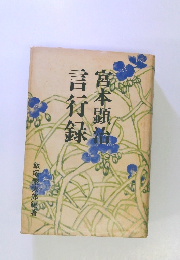 宮本顕治
言行録